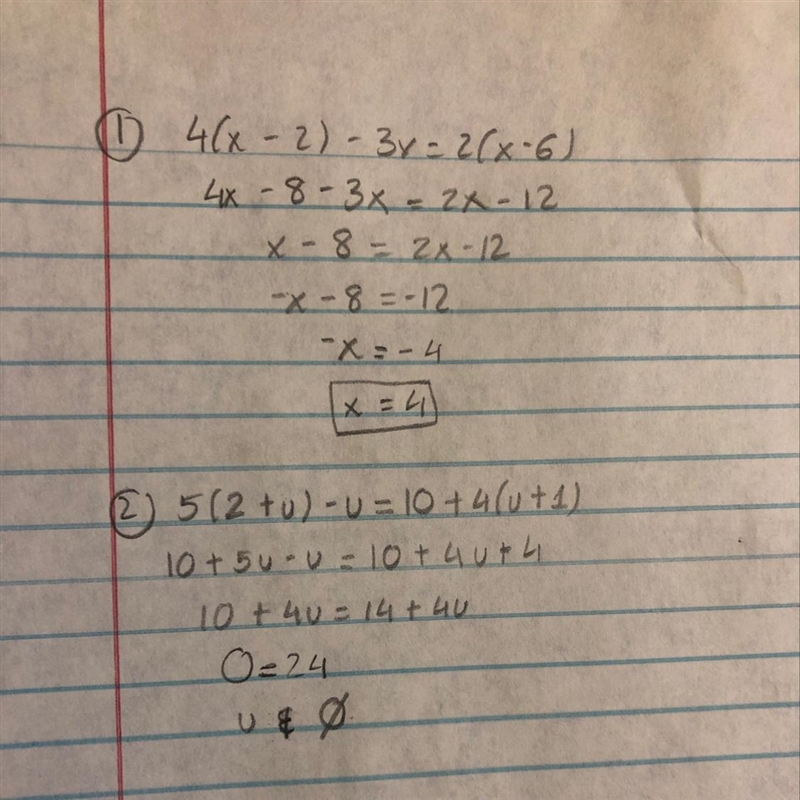 ① 4(x - 2) - 3x = 2(x - 6)
4x - 8 - 3x = 2x - 12
x - 8 = 2x - 12
-x - 8 = -12
-x = -4
x = 4
② 5(2 + u) - u = 10 + 4(u + 1)
10 + 5u - u = 10 + 4u + 4
10 + 4u = 14 + 4u
0 = 24
u ∈ ∅